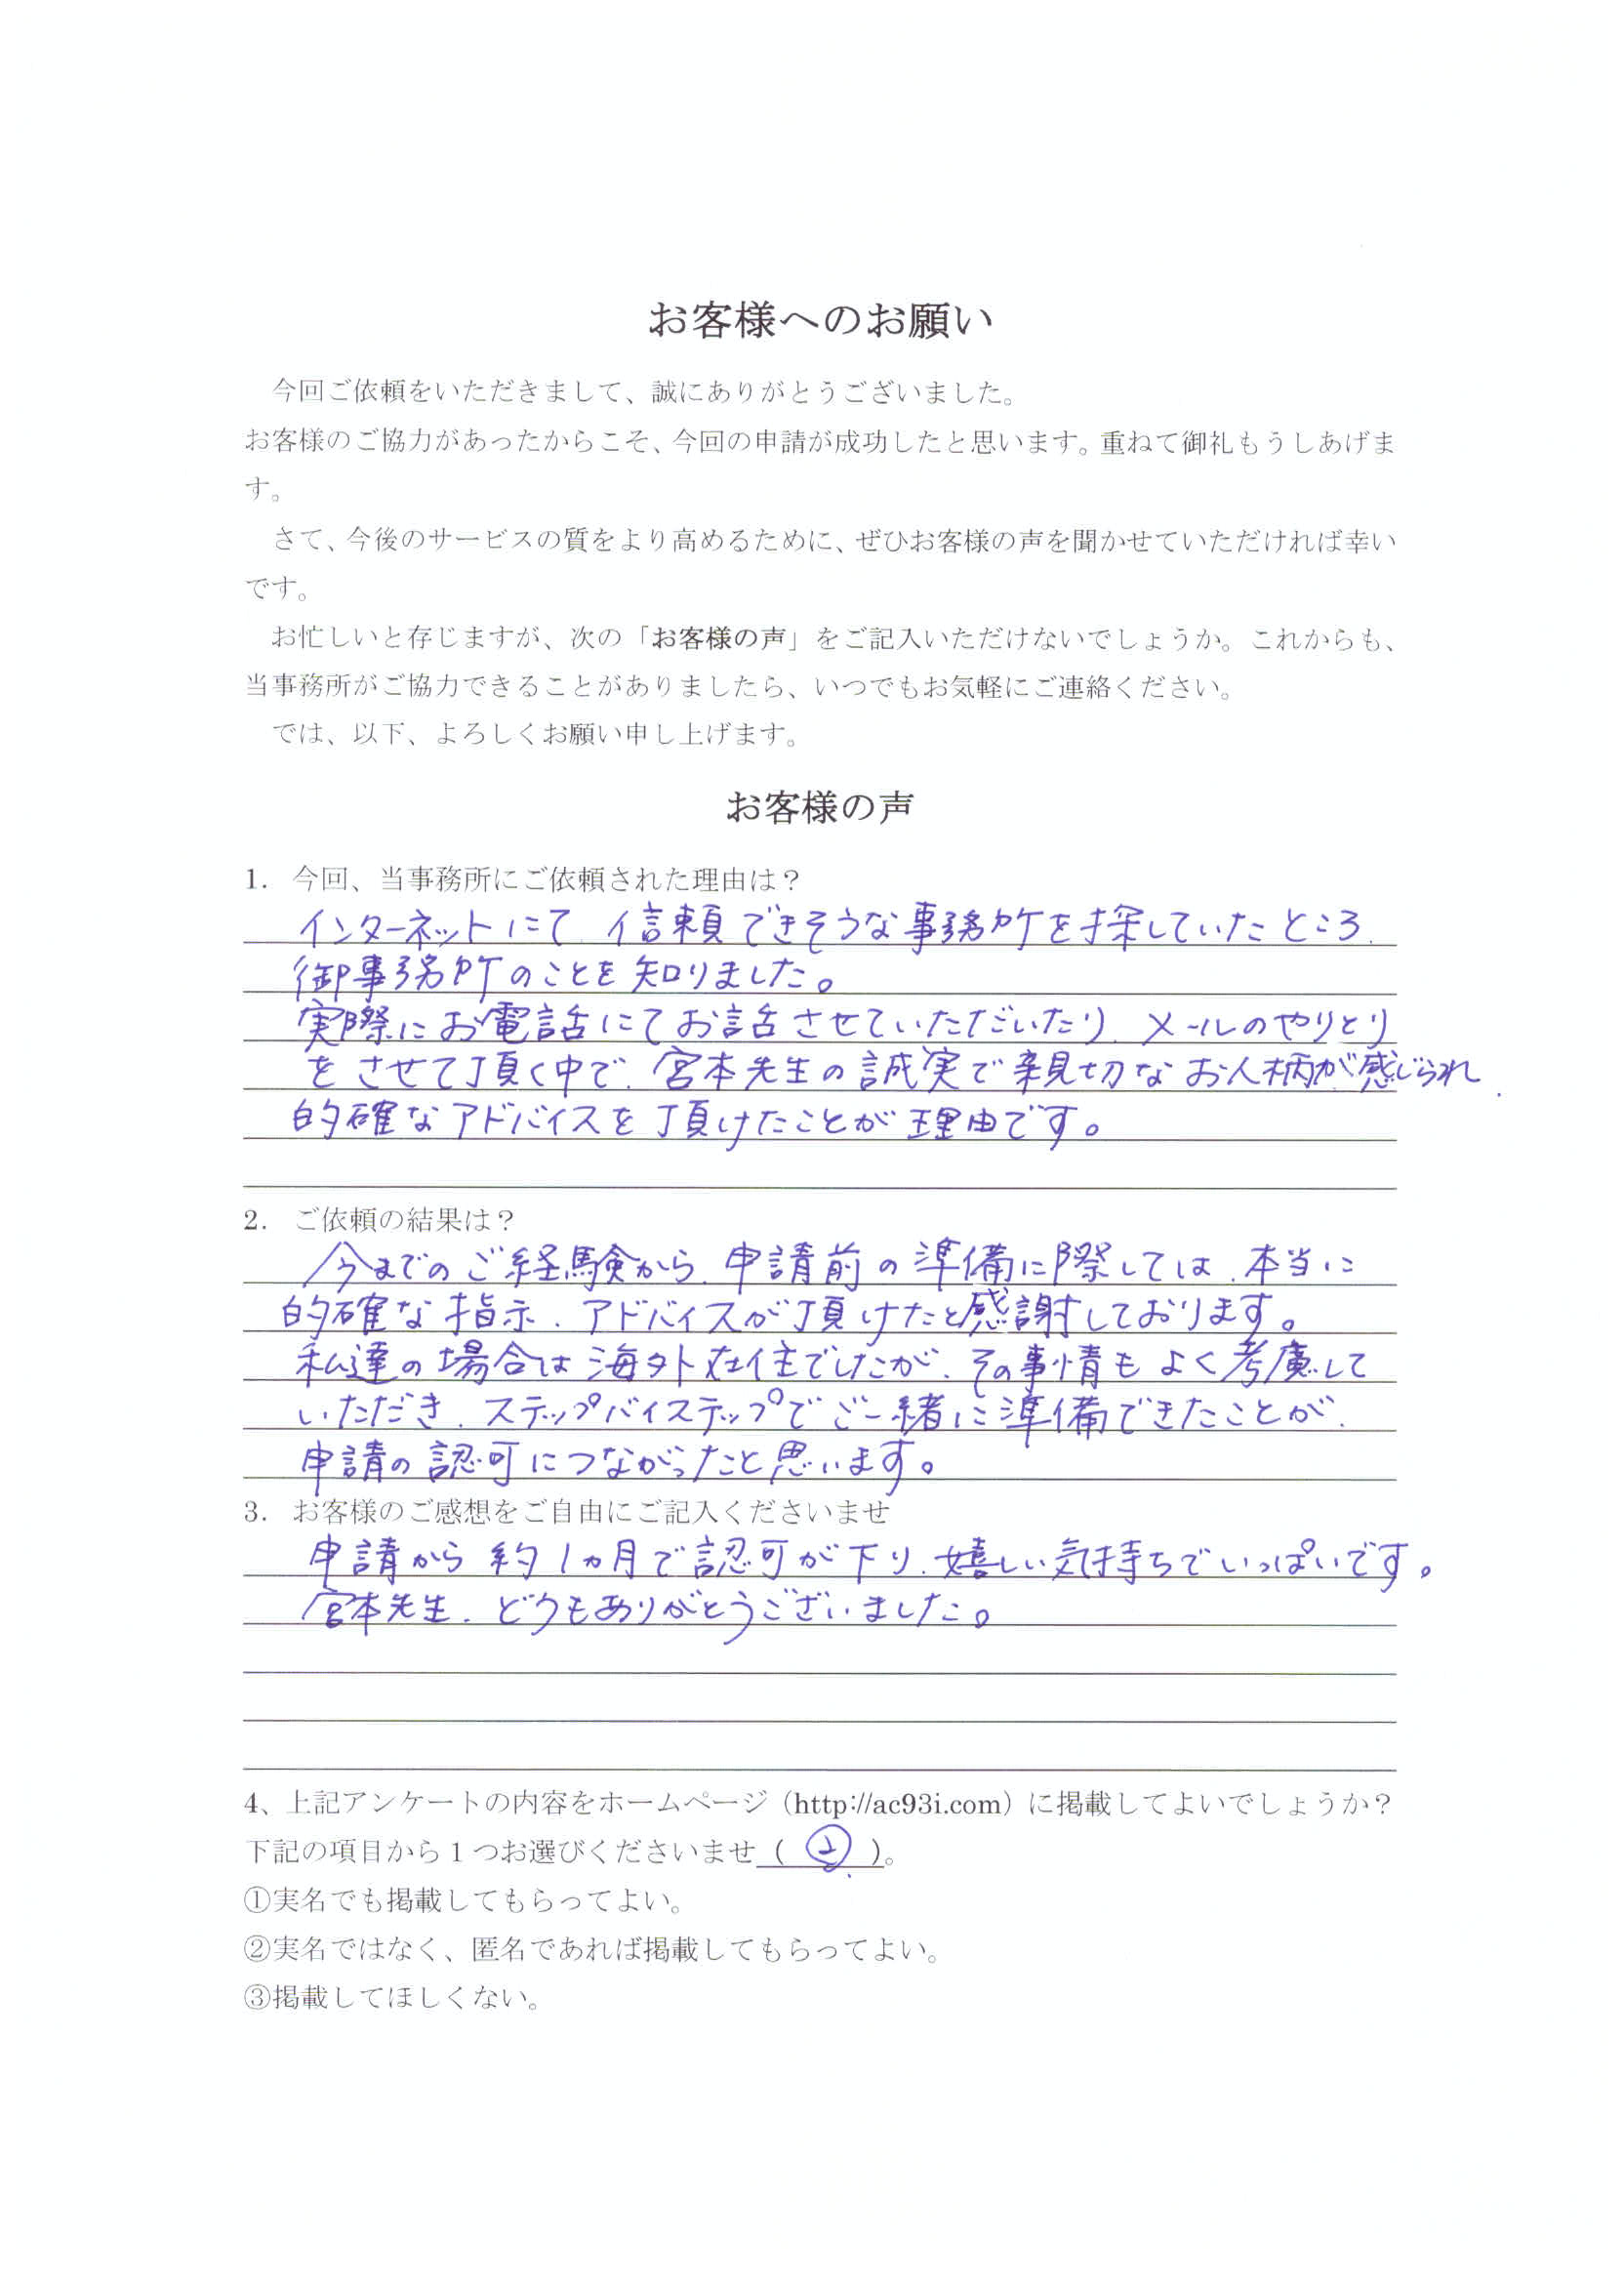 お客様へのお願い
今回ご依頼をいただきまして、誠にありがとうございました。
お客様のご協力があったからこそ、今回の申請が成功したと思います。重ねて御礼もうしあげま
す。
さて、今後のサービスの質をより高めるために、ぜひお客様の声を聞かせていただければ幸い
です。
お忙しいと存じますが、次の「お客様の声」をご記入いただけないでしょうか。これからも、
当事務所がご協力できることがありましたら、いつでもお気軽にご連絡ください。
では、以下、よろしくお願い申し上げます。
お客様の声
1. 今回、当事務所にご依頼された理由は？
インターネットにて、信頼できそうな事務所を探していたところ、
御事務所のことを知りました。
実際にお電話にてお話させていただいたり、メールのやりとり
をさせて頂く中で、宮本先生の誠実で親切なお人柄が感じられ、
的確なアドバイスを頂けたことが理由です。
2. ご依頼の結果は？
今までのご経験から、申請前の準備に際しては、本当に
的確な指示、アドバイスが頂けたと感謝しております。
私達の場合は海外在住でしたが、その事情もよく考慮して
いただき、ステップバイステップでご一緒に準備できたことが、
申請の認可につながったと思います。
3. お客様のご感想をご自由にご記入くださいませ
申請から約1ヵ月で認可が下り、嬉しい気持ちでいっぱいです。
宮本先生、どうもありがとうございました。
4、上記アンケートの内容をホームページ（http://ac93i.com）に掲載してよいでしょうか？
下記の項目から１つお選びくださいませ（ ② ）。
①実名でも掲載してもらってよい。
②実名ではなく、匿名であれば掲載してもらってよい。
③掲載してほしくない。